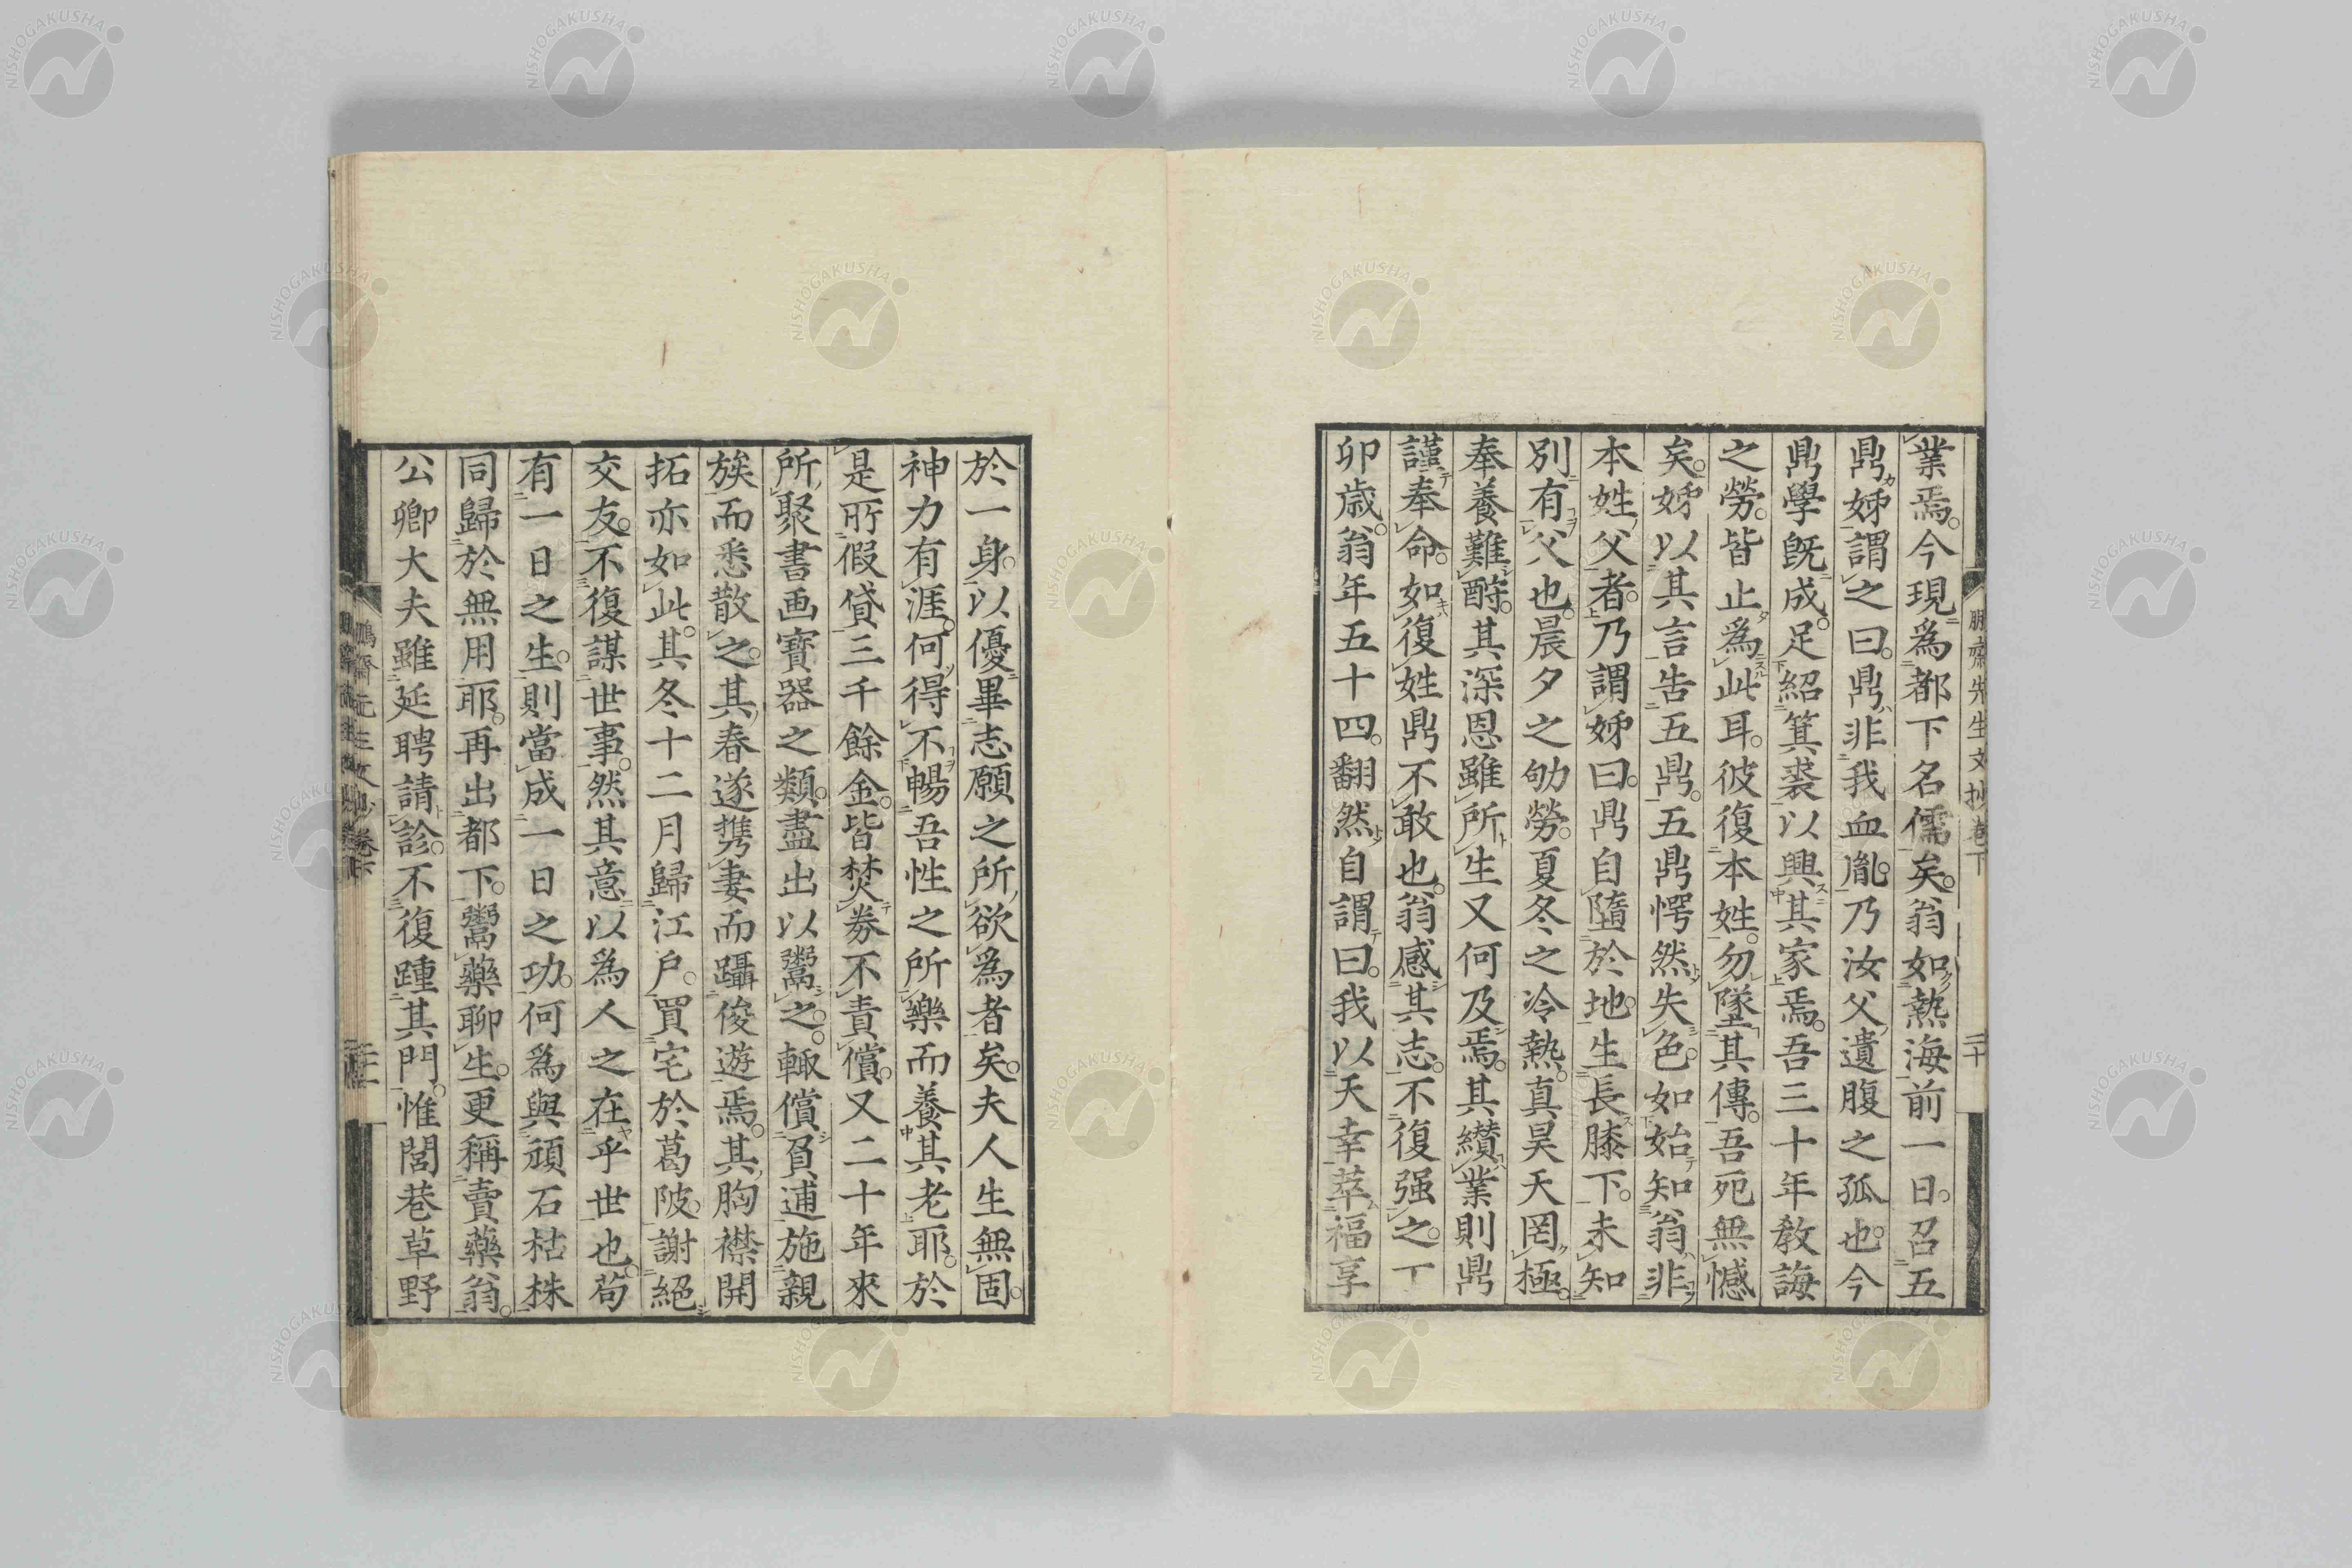 業焉。今現為都下名儒矣。翁如熱海前一日。召五
鼎姊謂之曰。鼎非我血胤。乃汝父遺腹之孤也。今
鼎學既成。足紹箕裘以興其家焉。吾三十年教誨
之勞。皆止為此耳。彼復本姓。勿墜其傳。吾死無憾
矣。姊以其言告五鼎。五鼎愕然失色。如始知翁非
本姓父者。乃謂姊曰。鼎自墮於地。生長膝下。未知
別有父也。晨夕之劬勞。夏冬之冷熱。真昊天罔極。
奉養難酹。其深恩雖所生又何及焉。其纘業則鼎
謹奉命。如復姓鼎不敢也。翁感其志。不復强之。丁
卯歲。翁年五十四。翻然自謂曰。我以天幸萃福享
鵬齋先生文抄卷下
二十
於一身。以優畢志願之所欲為者矣。夫人生無固。
神力有涯。何得不暢吾性之所樂而養其老耶。於
是所假貸三千餘金。皆焚劵不責償。又二十年來
所聚書画寶器之類。盡出以鬻之。輙償負逋施親
族而悉散之。其春遂携妻而躡俊遊焉。其胸襟開
拓亦如此。其冬十二月歸江戶。買宅於葛陂。謝絕
交友。不復謀世事。然其意以為人之在乎世也。苟
有一日之生。則當成一日之功。何為與頑石枯株
同歸於無用耶。再出都下。鬻藥聊生。更稱賣藥翁。
公卿大夫雖延聘請診。不復踵其門。惟閭巷草野
鵬齋先生文抄卷下
NISHOGAKUSHA